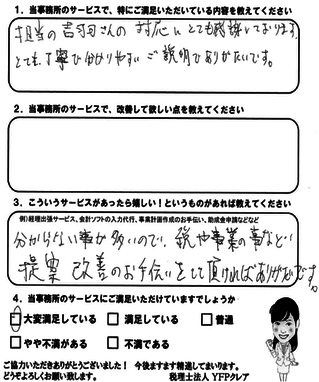 1．当事務所のサービスで、特にご満足いただいている内容を教えてください
担当の吉羽さんの対応にとても感謝しております。
とても丁寧で分かりやすいご説明でありがたいです。
2．当事務所のサービスで、改善して欲しい点を教えてください
3．こういうサービスがあったら嬉しい！というものがあれば教えてください
例）経理出張サービス、会計ソフトの入力代行、事業計画作成のお手伝い、助成金申請などなど
分からない事が多いので、税や事業の事など
提案 改善のお手伝いをして頂ければありがたいです。
4．当事務所のサービスにご満足いただけていますでしょうか
大変満足している 満足している 普通
やや不満がある 不満である
ご協力いただきありがとうございました！ 今後ますます精進してまいります。
どうぞよろしくお願い致します。 税理士法人 YFPクレア